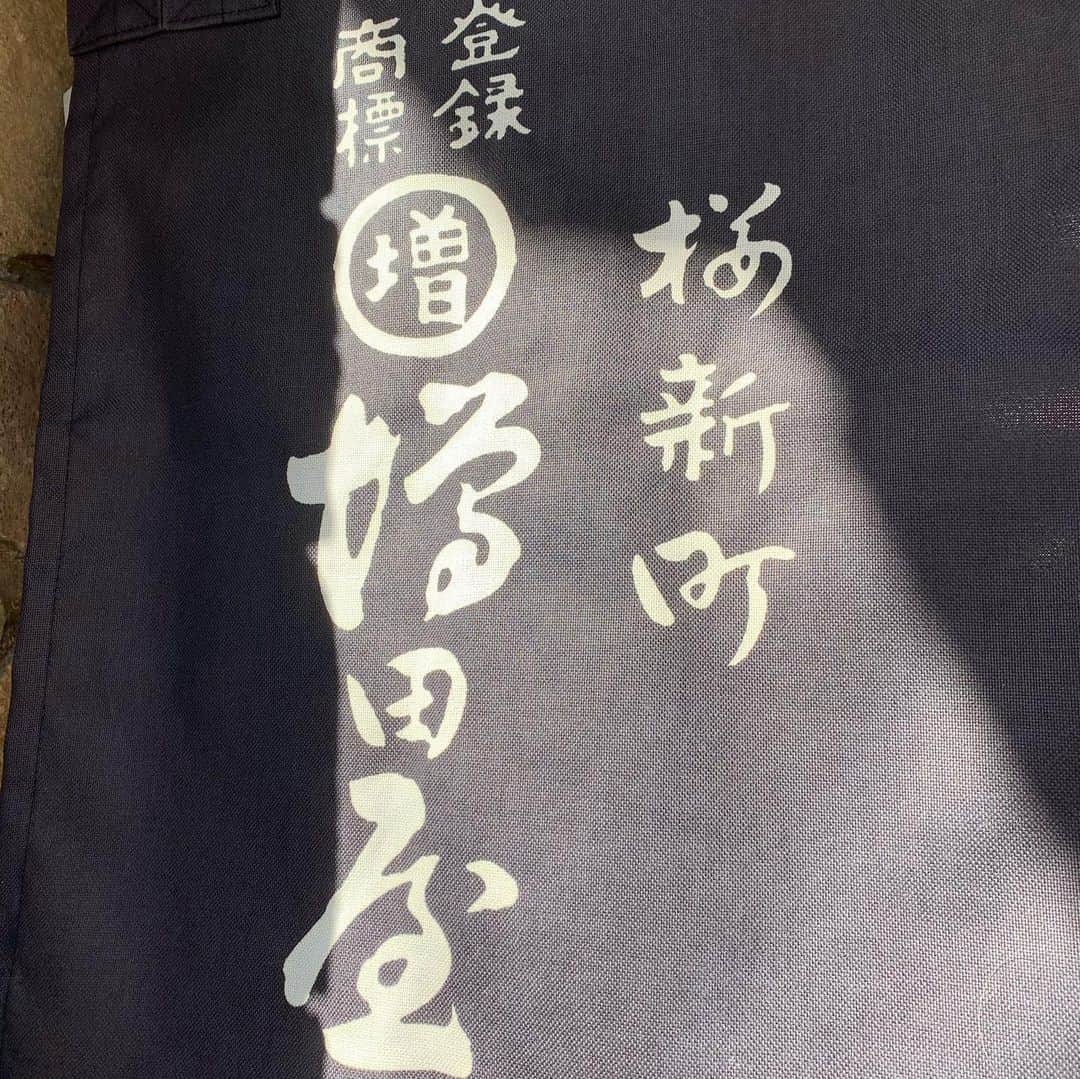 桜新町
登録
商標
増
増田屋